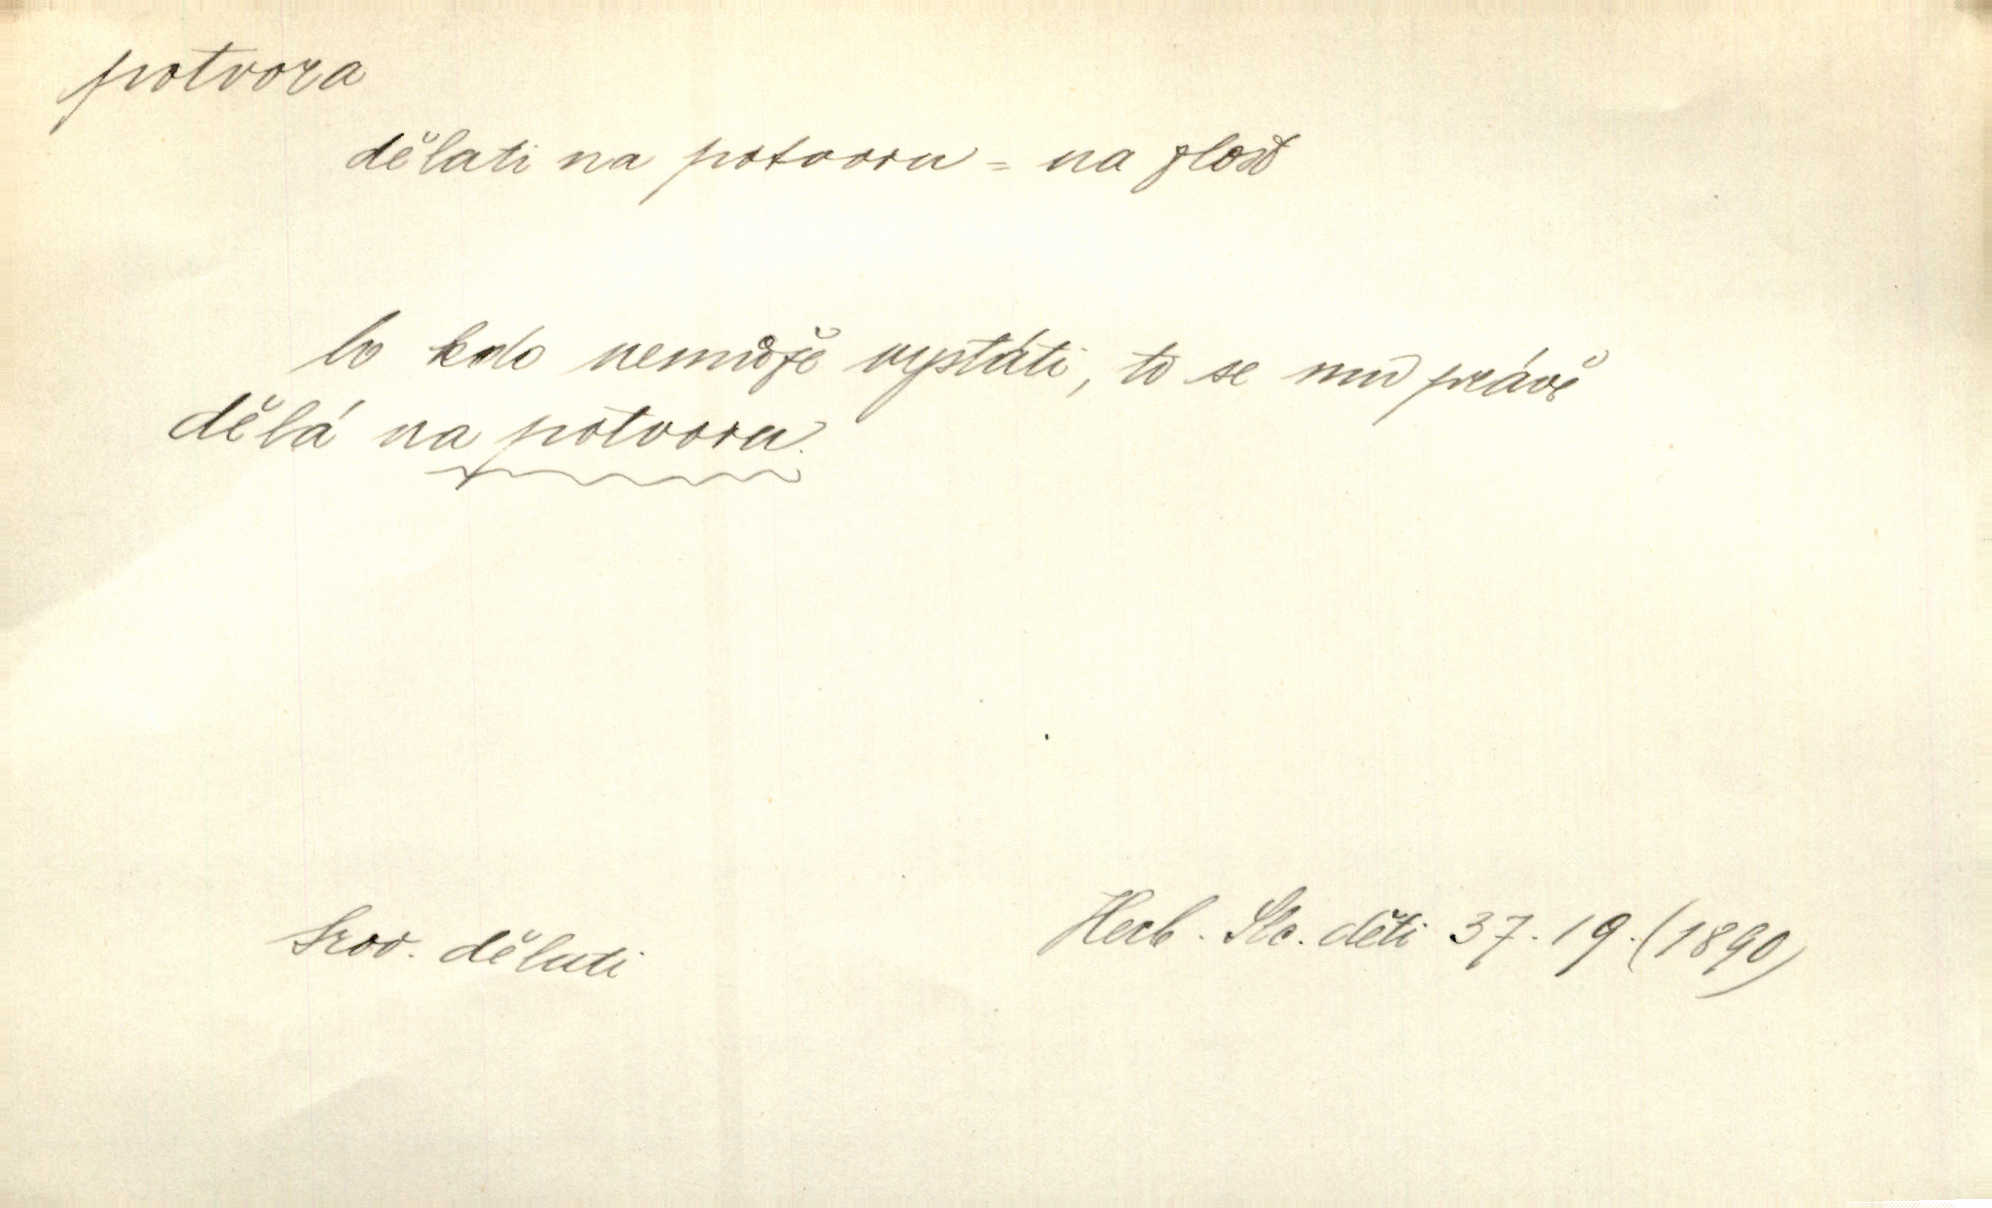 potvora
dělati na potvoru = na zlosť
co kdo nemůže vystáti, to se mu právě
dělá na potvoru.
Srov. dělati
Herb. Slc. děti 37.19. (1890)